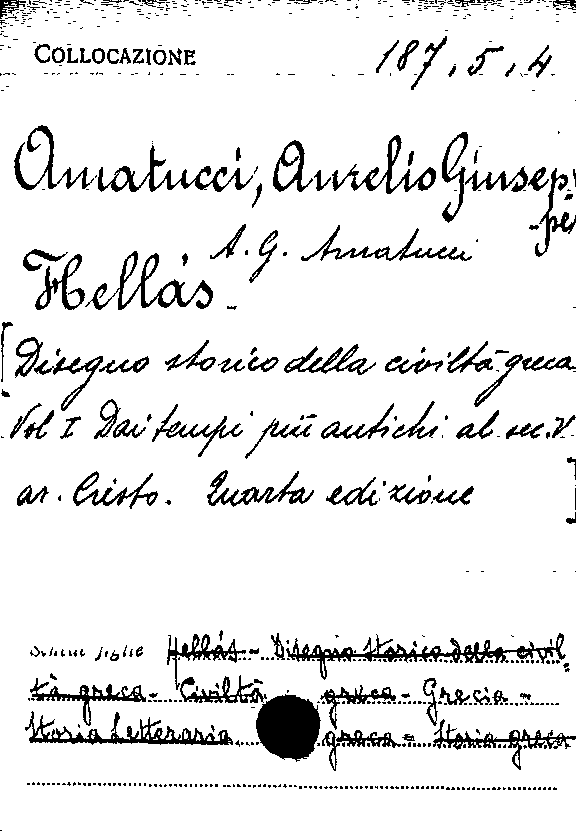 COLLOCAZIONE 187.5.4
Amatucci, Aurelio Giusep-
pe
A. G. Amatucci
Hellás
[Disegno storico della civiltà greca
Vol I Dai tempi più antichi al sec. V
av. Cristo. Quarta edizione ]
Hellás - Disegno storico della civil-
tà greca - Civiltà greca - Grecia -
Storia Letteraria greca - Storia greca